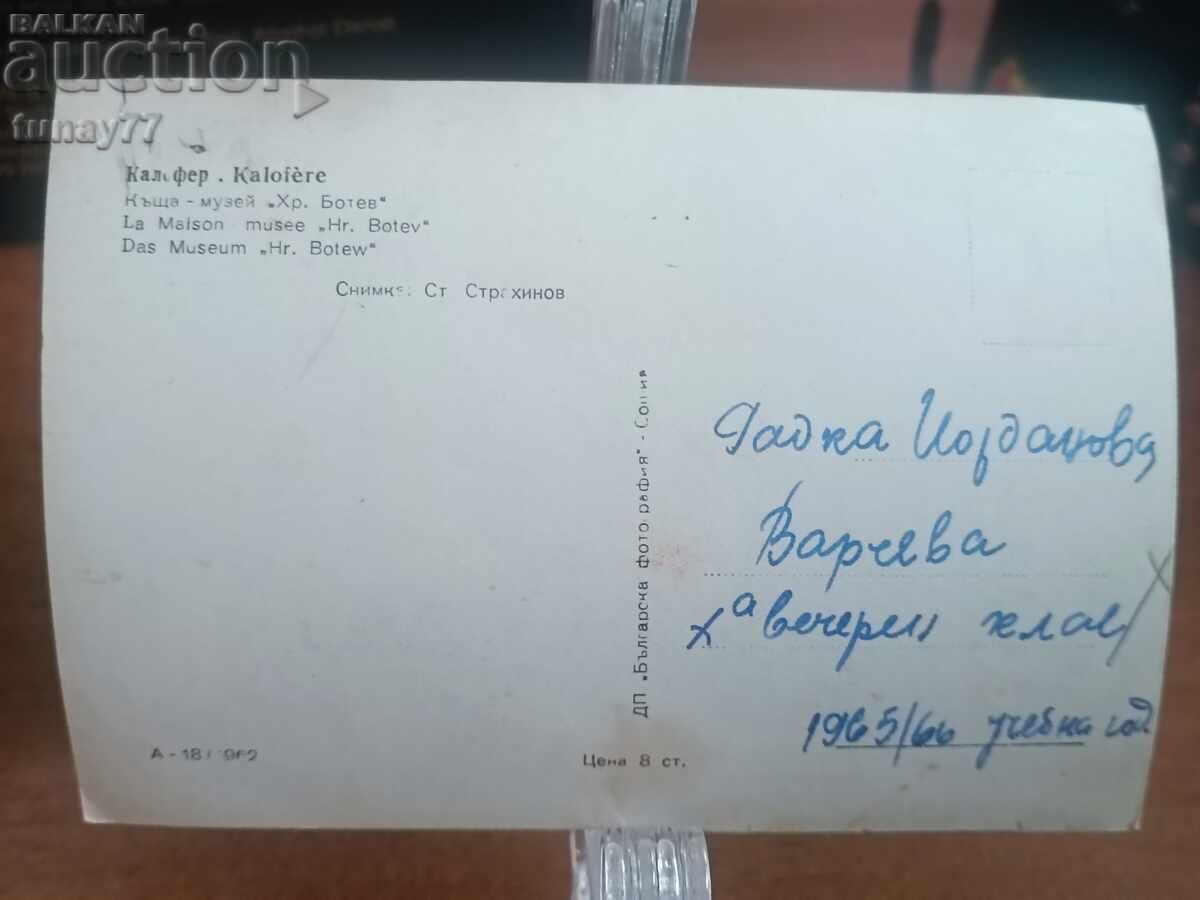 BALKAN
auction
tunay77
Калофер . Kalofère
Къща - музей „Хр. Ботев"
La Maison musee „Hr. Botev"
Das Museum „Hr. Botew"
Снимка: Ст Страхинов
ДП „Българска фотография" - София
Йорданова
Варчева
X а вечерен клас
1965/66 учебна год
Цена 8 ст.